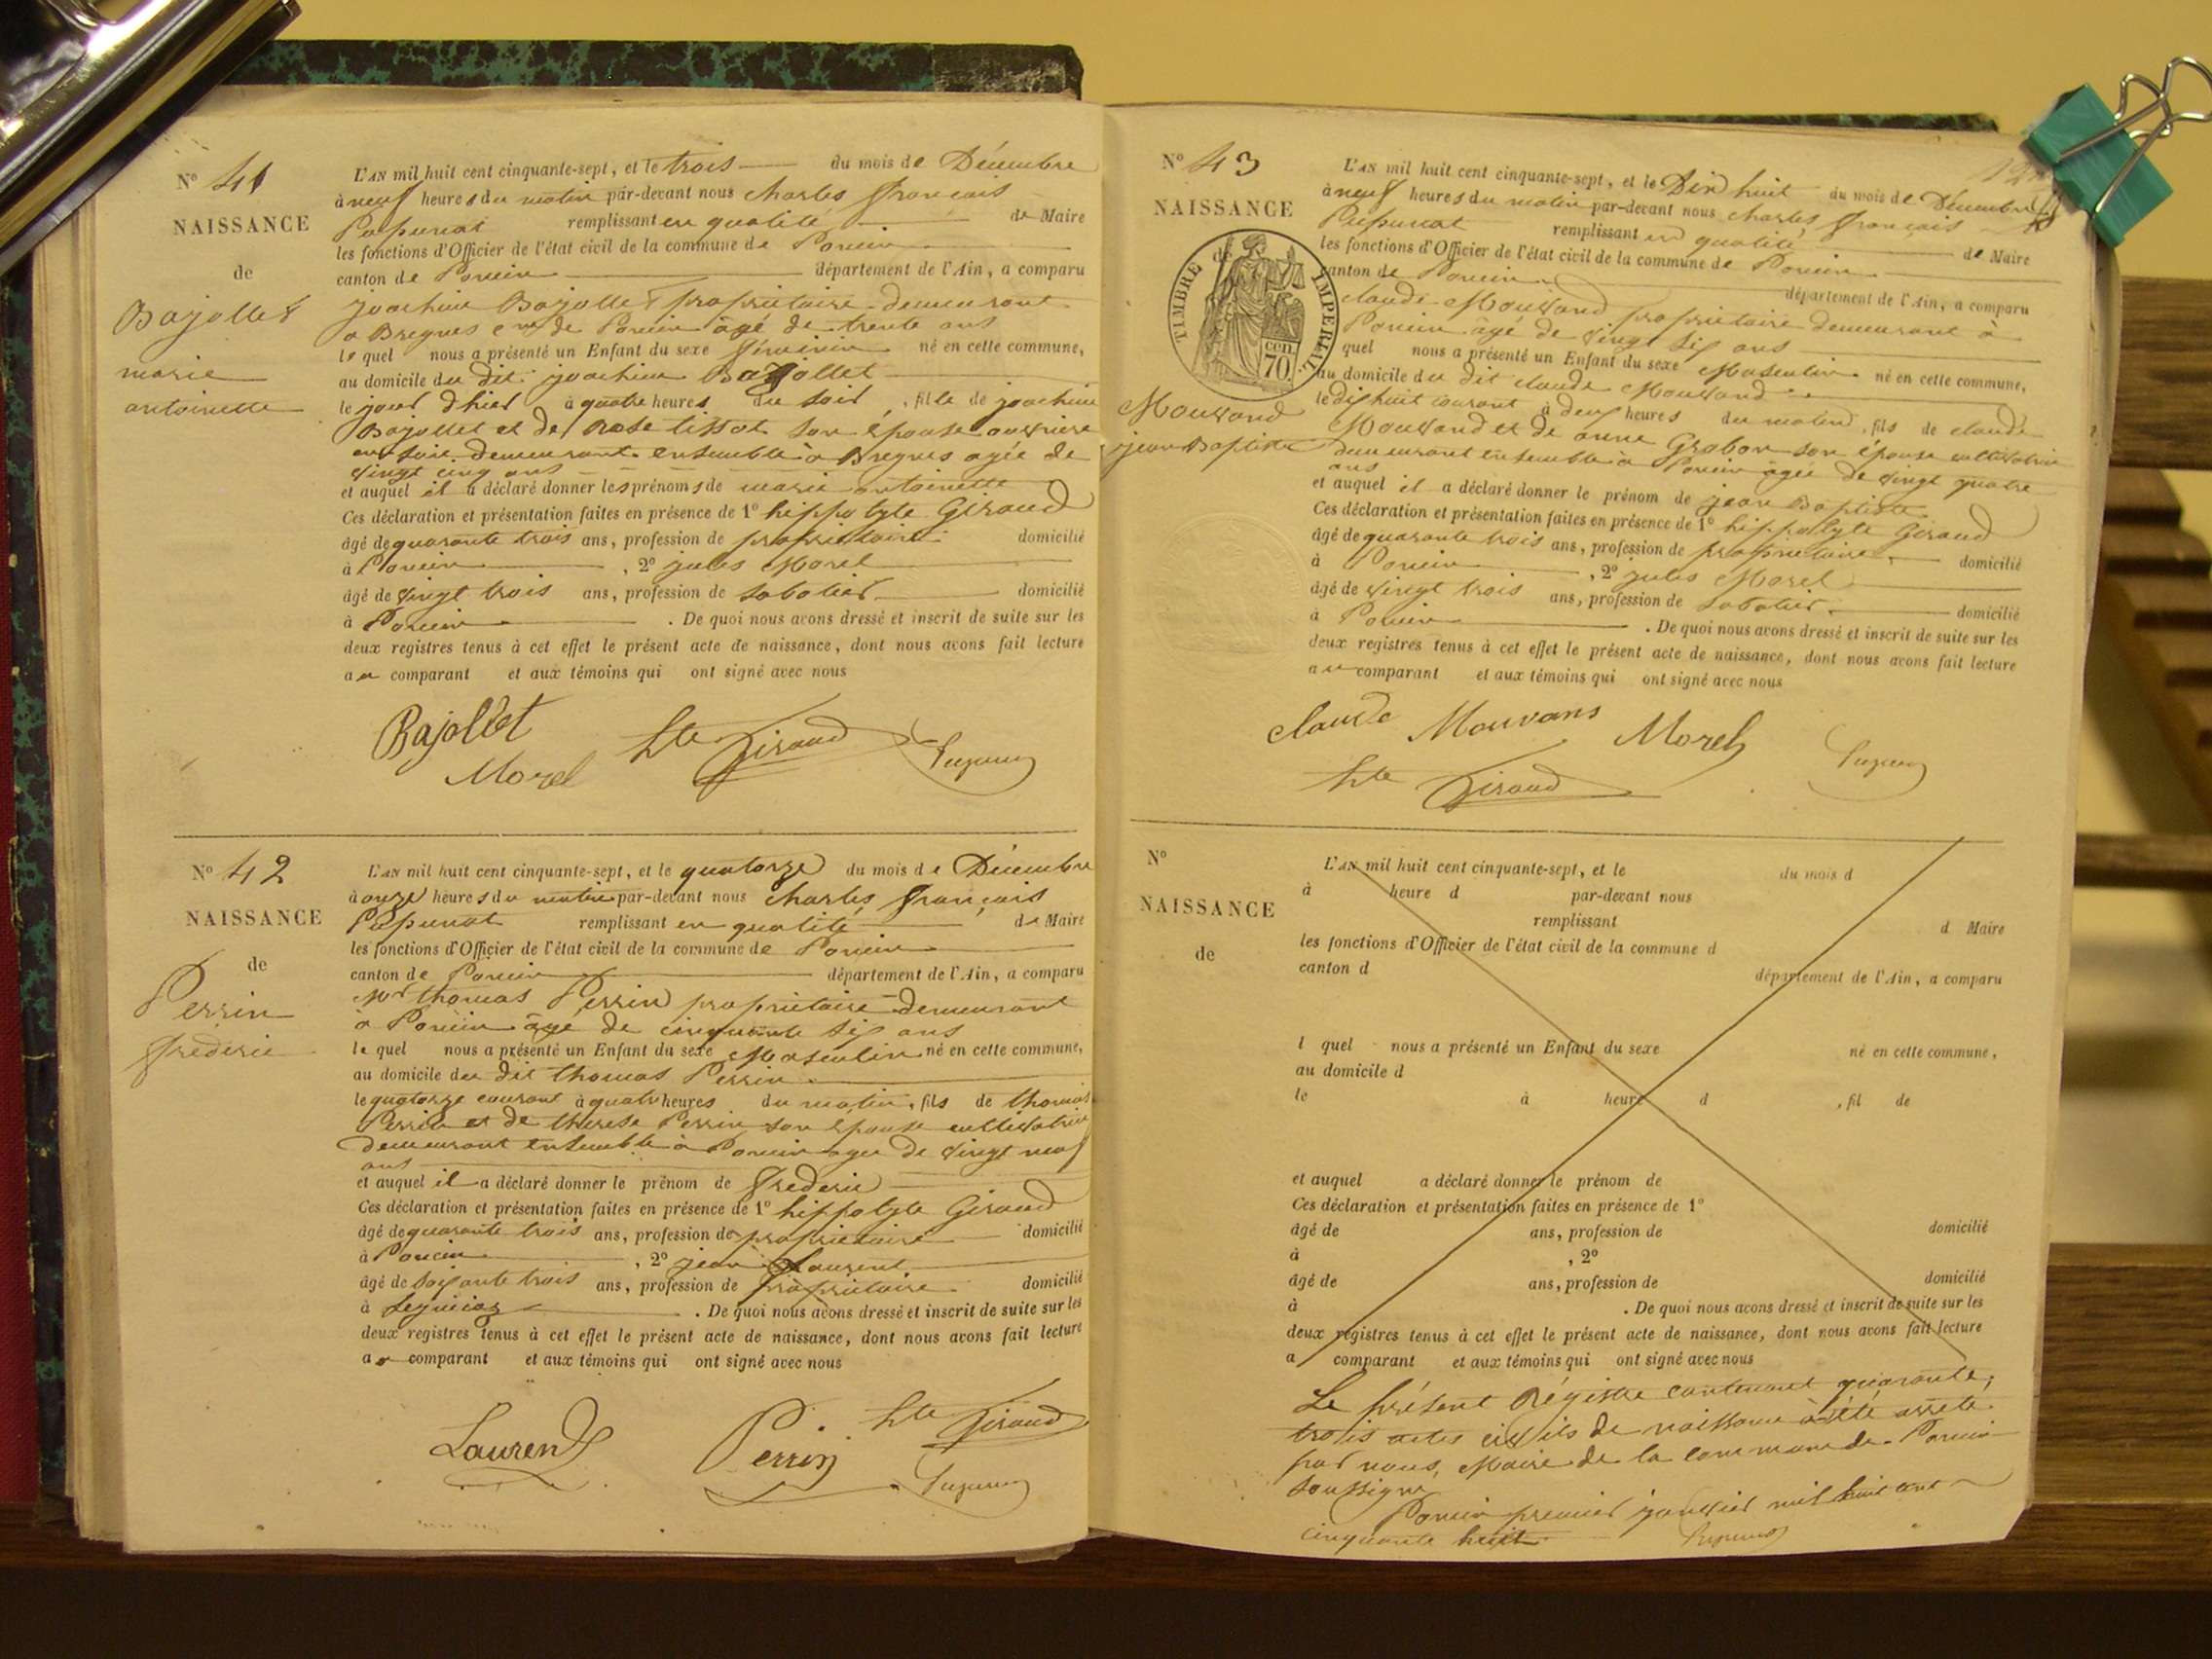 N° 41
NAISSANCE
de
Bajollet
marie
antoinette
L'AN mil huit cent cinquante-sept, et le trois du mois de Décembre
à neuf heures du matin par-devant nous charles françois
Pupunat remplissant en qualité de Maire
les fonctions d'Officier de l'état civil de la commune de Poncin
canton de Poncin département de l'Ain, a comparu
joachim Bajollet propriétaire demeurant
a Bregnes cne de Poncin âgé de trente ans
le quel nous a présenté un Enfant du sexe féminin né en cette commune,
au domicile du dit joachim Bajollet
le jour d'hier à quatre heures du soir, fille de joachim
Bajollet et de Rose tissot son épouse ouvrière
en soie demeurant ensemble a Bregnes agée de
vingt cinq ans
et auquel il a déclaré donner les prénoms de marie antoinette
Ces déclaration et présentation faites en présence de 1° hippolyte Giraud
âgé de quarante trois ans, profession de propriétaire domicilié
à Poncin, 2° jules Morel
âgé de vingt trois ans, profession de sabotier domicilié
à Poncin. De quoi nous avons dressé et inscrit de suite sur les
deux registres tenus à cet effet le présent acte de naissance, dont nous avons fait lecture
au comparant et aux témoins qui ont signé avec nous
Bajollet Hte Giraud Pupunat
Morel
N° 42
NAISSANCE
de
Perrin
frederic
L'AN mil huit cent cinquante-sept, et le quatorze du mois de Décembre
à onze heures du matin par-devant nous charles françois
Pupunat remplissant en qualité de Maire
les fonctions d'Officier de l'état civil de la commune de Poncin
canton de Poncin département de l'Ain, a comparu
Mr thomas Perrin propriétaire demeurant
à Poncin âgé de cinquante six ans
le quel nous a présenté un Enfant du sexe Masculin né en cette commune,
au domicile du dit thomas Perrin
le quatorze courant à quatre heures du matin, fils de thomas
Perrin et de therese Perrin son épouse cultivatrice
demeurant ensemble à Poncin agée de vingt neuf
ans
et auquel il a déclaré donner le prénom de frederic
Ces déclaration et présentation faites en présence de 1° hippolyte Giraud
âgé de quarante trois ans, profession de propriétaire domicilié
à Poncin, 2° jean Laurent
âgé de soixante trois ans, profession de propriétaire domicilié
à Leymiaz. De quoi nous avons dressé et inscrit de suite sur les
deux registres tenus à cet effet le présent acte de naissance, dont nous avons fait lecture
au comparant et aux témoins qui ont signé avec nous
Laurent Perrin Hte Giraud
Pupunat
N° 43
NAISSANCE
de
TIMBRE IMPERIAL
70 cen.
Mouvand
jean Baptiste
L'AN mil huit cent cinquante-sept, et le Dix huit du mois de Décembre
à neuf heures du matin par-devant nous charles françois
Pupunat remplissant en qualité de Maire
les fonctions d'Officier de l'état civil de la commune de Poncin
canton de Poncin département de l'Ain, a comparu
claude Mouvand propriétaire demeurant à
Poncin agé de vingt six ans
quel nous a présenté un Enfant du sexe Masculin né en cette commune,
au domicile du dit claude Mouvand
le dix huit courant à deux heures du matin, fils de claude
Mouvand et de anne Grobon son épouse cultivatrice
demeurant ensemble à Poncin agée de vingt quatre
ans
et auquel il a déclaré donner le prénom de jean Baptiste
Ces déclaration et présentation faites en présence de 1° hippolyte Giraud
âgé de quarante trois ans, profession de propriétaire domicilié
à Poncin, 2° jules Morel
âgé de vingt trois ans, profession de sabotier domicilié
à Poncin. De quoi nous avons dressé et inscrit de suite sur les
deux registres tenus à cet effet le présent acte de naissance, dont nous avons fait lecture
au comparant et aux témoins qui ont signé avec nous
claude Mouvans Morel Pupunat
Hte Giraud
N°
NAISSANCE
de
L'AN mil huit cent cinquante-sept, et le du mois d
à heure d par-devant nous
remplissant d Maire
les fonctions d'Officier de l'état civil de la commune d
canton d département de l'Ain, a comparu
l quel nous a présenté un Enfant du sexe né en cette commune,
au domicile d
le à heure d, fil de
et auquel a déclaré donner le prénom de
Ces déclaration et présentation faites en présence de 1°
âgé de ans, profession de domicilié
à, 2°
âgé de ans, profession de domicilié
à. De quoi nous avons dressé et inscrit de suite sur les
deux registres tenus à cet effet le présent acte de naissance, dont nous avons fait lecture
a comparant et aux témoins qui ont signé avec nous
Le présent Régistre contenant quarante,
trois actes civils de naissance à été arrêté
par nous, Maire de la commune de Poncin
soussigné
Poncin premier janvier mil huit cent
cinquante huit Pupunat